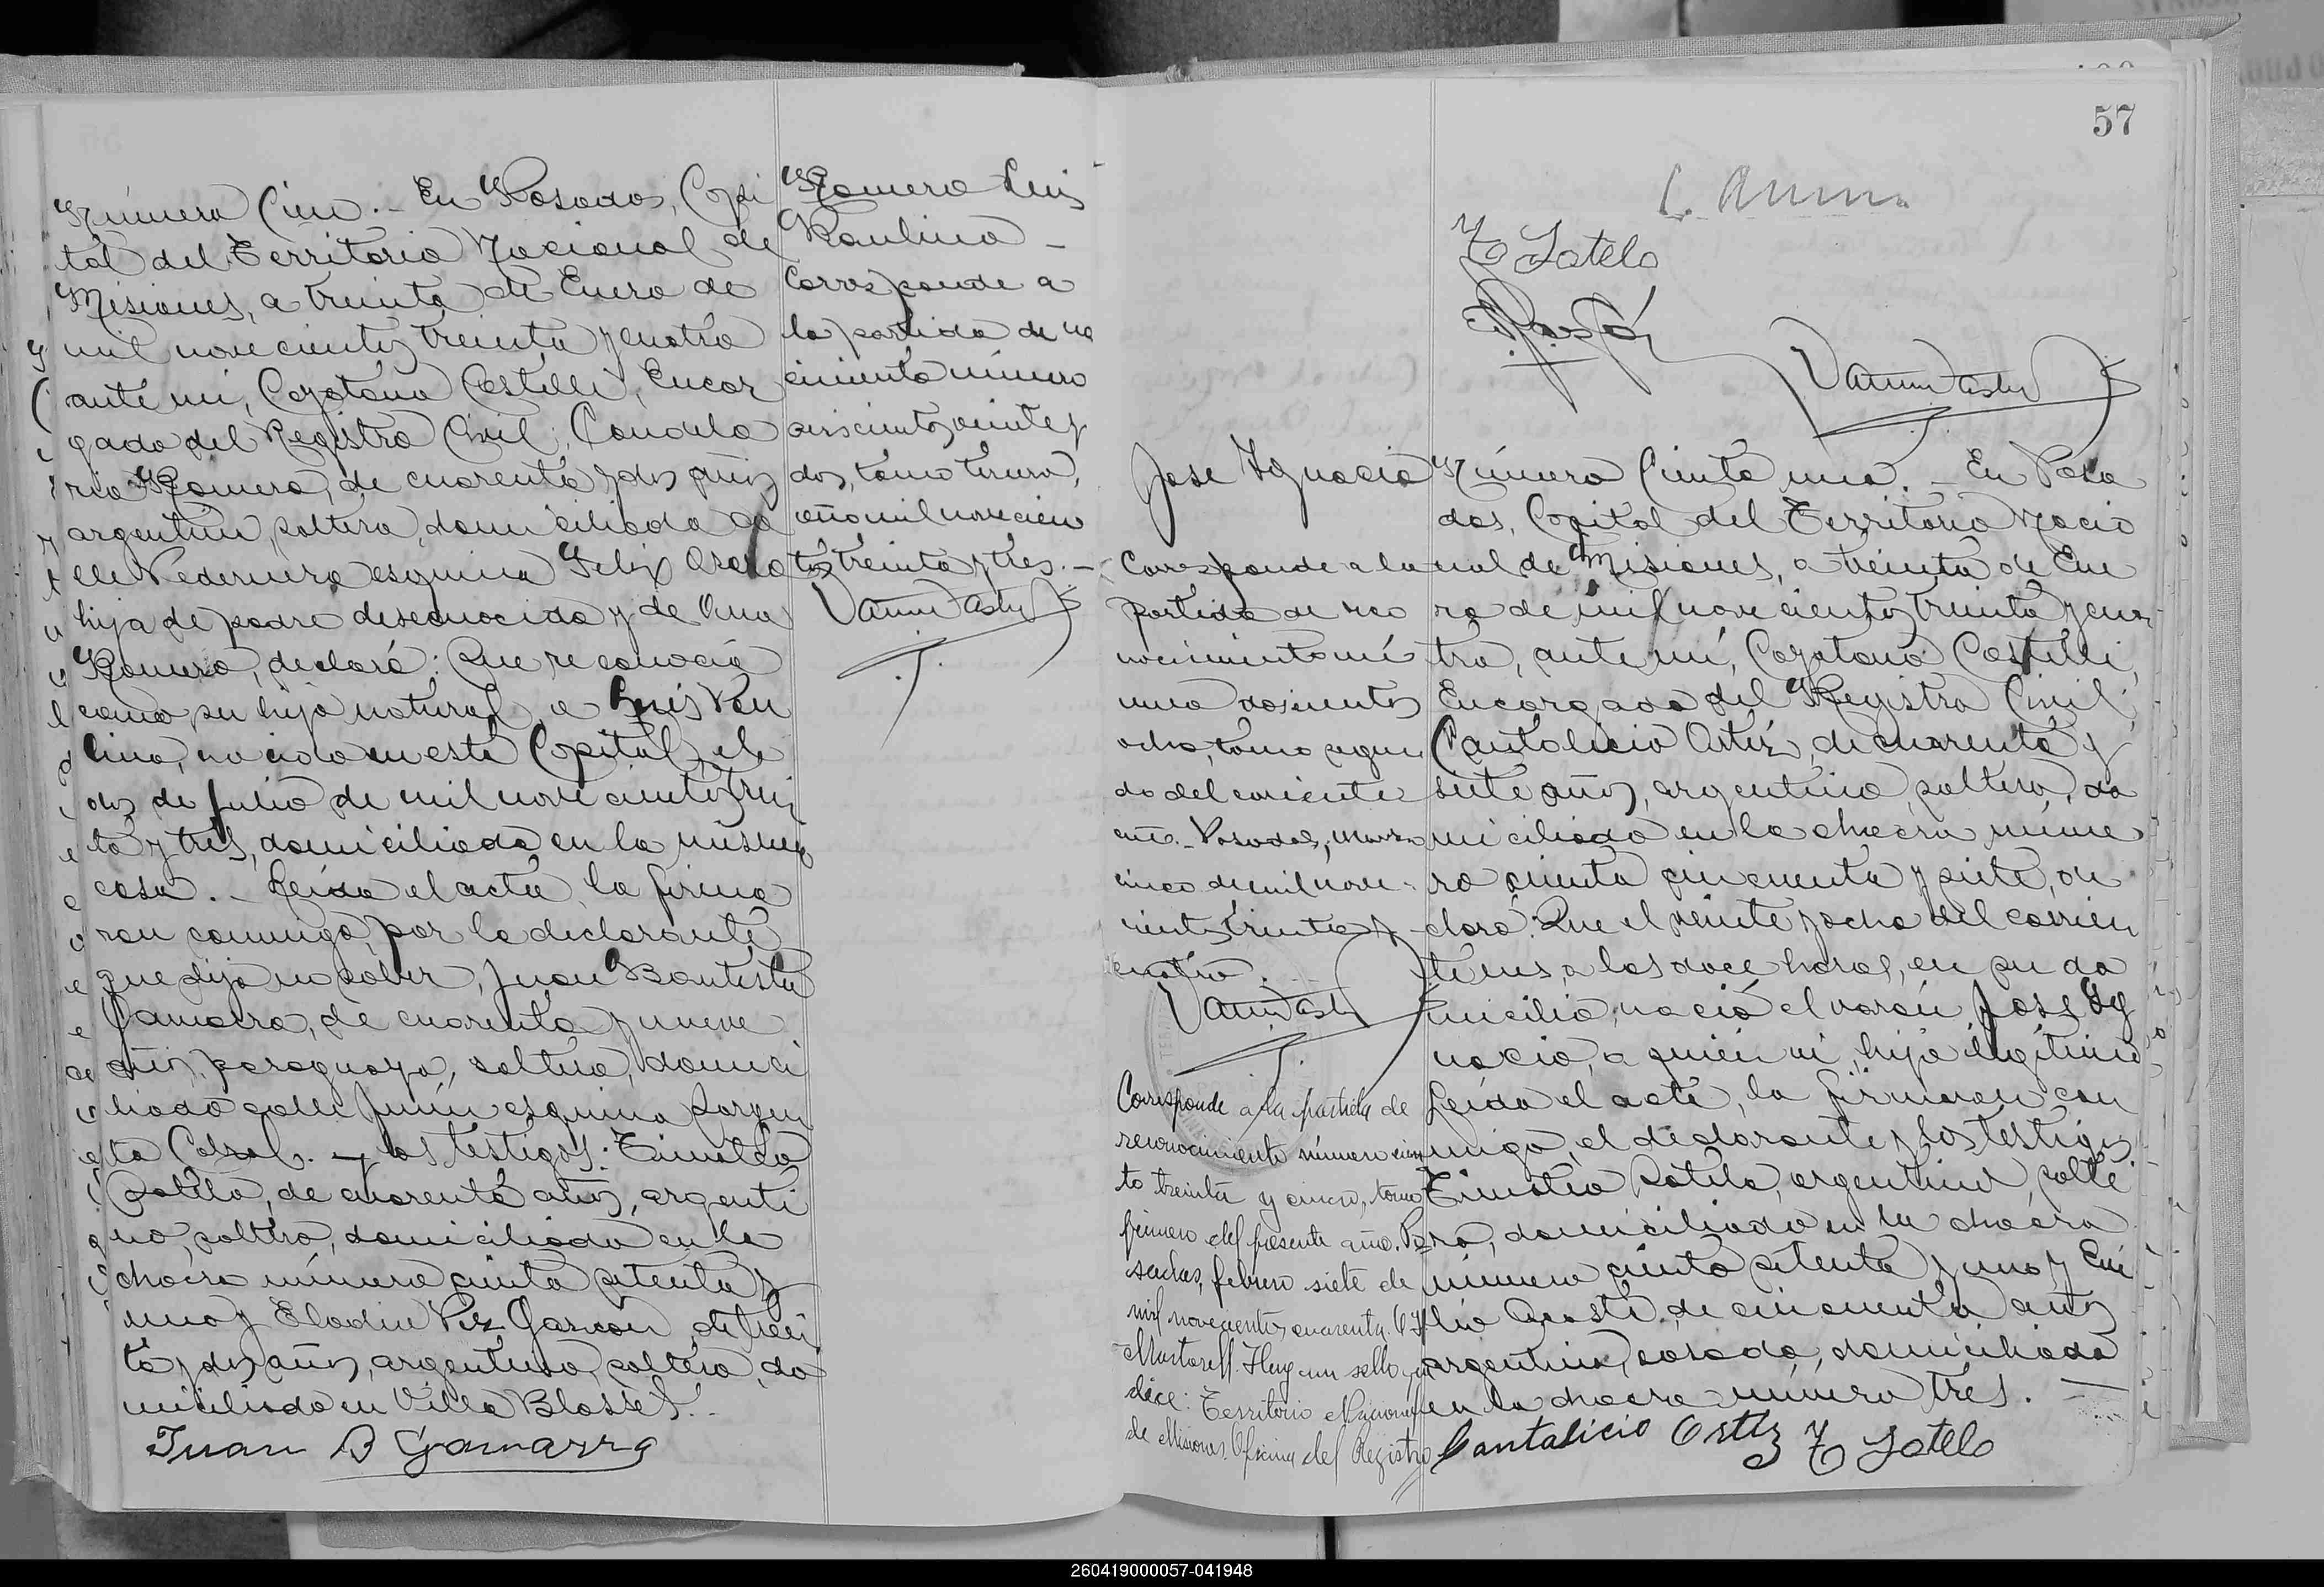 Número Cien.- En Posadas, Capi
tal del Territorio Nacional de
Misiones, a treinta de Enero de
mil novecientos treinta y cuatro
ante mi, Cayetano Castelli, Encar
gado del Registro Civil; Candela
ria Romero, de cuarenta y dos años
argentina, soltera, domiciliada ca
lle Pedernera esquina Felix
hija de padre desconocido y de Ana
Romero, declaró: Que reconocía
como su hijo natural a Luis Pau
lino, nacido en esta Capital, el
dos de Julio de mil novecientos trein
ta y tres, domiciliado en la misma
casa.- Leída el acta, la firma
ron conmigo, por la declarante
que dijo no saber, Juan Bautista
Gamarra, de cuarenta y nueve
años, paraguayo, soltero, domici
liado calle Junín esquina Sargen
to Cabral.- y los testigos: Timoteo
Sotelo, de cuarenta años, argenti
no, soltero, domiciliado en la
chacra número ciento setenta y
uno y Eladio Garzón, de trein
ta y dos años, argentino, soltero, do
miciliado en Villa Blosset.-
Juan B Gamarra
Romero Luis
Paulino -
Corresponde a
la partida de na
cimiento número
seiscientos veinte y
dos, tomo tercero,
año mil novecien
tos treinta y tres.-
57
To Sotelo
Jose Ygnacio
Corresponde a la
partida de reco
nocimiento nú
mero doscientos
ocho, tomo segun
do del corriente
año.- Posadas, Marzo
cinco de mil nove
cientos treinta y
cuatro.
Corresponde a la partida de
reconocimiento número cien
to treinta y cinco, tomo
primero del presente año. Po
sadas, febrero siete de
mil novecientos cuarenta.
Hay un sello que
dice: Territorio Nacional
de Misiones. Oficina del Registro
Número Ciento uno.- En Posa
das, Capital del Territorio Nacio
nal de Misiones, a treinta de Ene
ro de mil novecientos treinta y cua
tro, ante mí, Cayetano Castelli,
Encargado del Registro Civil;
Cantalicio Ortiz, de cuarenta y
siete años, argentino, soltero, do
miciliado en la chacra núme
ro ciento cincuenta y siete, de
claró: Que el veinte y ocho del corrien
te mes, a las doce horas, en su do
micilio, nació el varón Jose Yg
nacio, a quién ví, hijo ilegítimo
Leída el acta, la firmaron con
migo, el declarante y los testigos
Timoteo Sotelo, argentino, solte
ro, domiciliado en la chacra
número ciento setenta y uno y Emi
lio de cincuenta años
argentino, casado, domiciliado
en la chacra número tres.
Cantalicio Ortiz To Sotelo
260419000057-041948